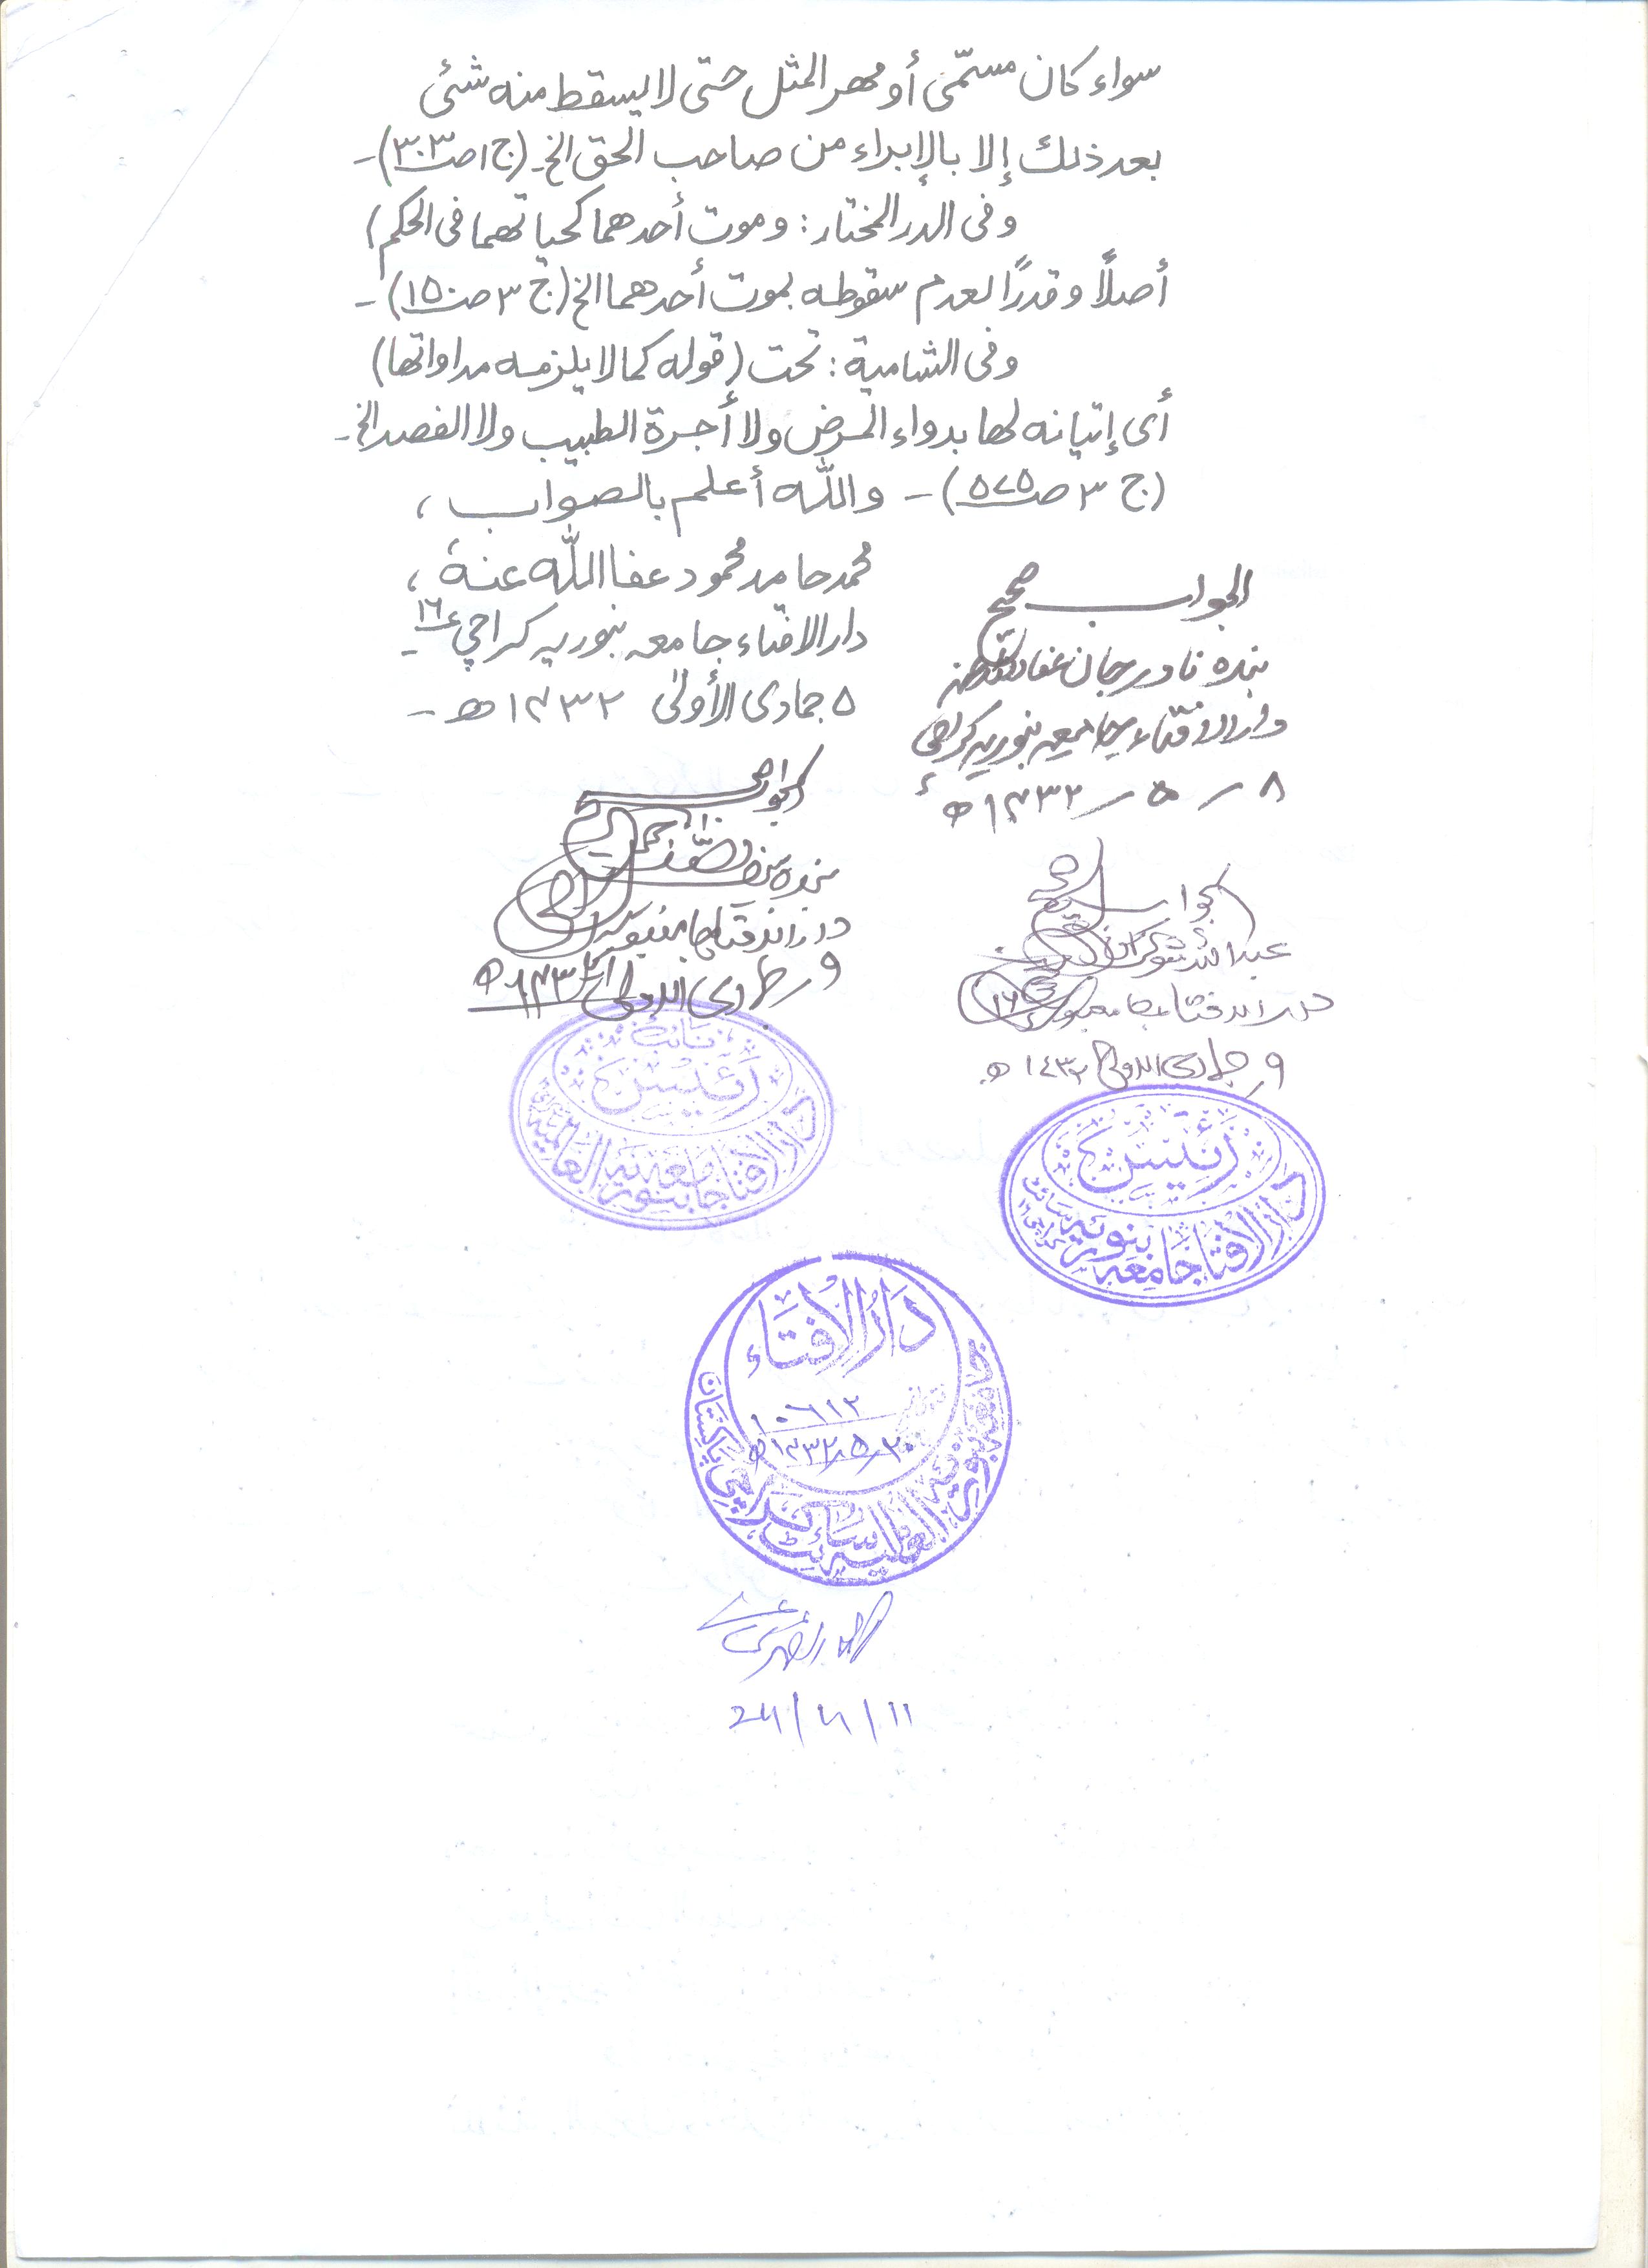 سواء كان مسمّى أو مهر المثل حتى لا يسقط منه شئى
بعد ذلك إلا بالإبراء من صاحب الحق الخ۔ (ج۱ صـ۳۰۳)۔
وفى الدر المختار: وموت أحدهما كحياتهما فى الحكم)
أصلًا وقدرًا لعدم سقوطه بموت أحدهما الخ (ج ۳ صـ۱۵۰)۔
وفى الشامية: تحت (قوله كما لا يلزمه مداواتها)
أى إتيانه لها بدواء المرض ولا أجرة الطبيب ولا الفصد الخ۔
(ج ۳ صـ۵۷۵)۔ والله أعلم بالصواب،
محمد حامد محمود عفا الله عنه،
دار الافتاء جامعہ بنوریہ کراچی ۱۶۔
۵ جمادى الأولىٰ ۱۴۳۲ھ۔
الجواب صحیح
بندہ نادر جان عفا اللہ عنہ
دار الافتاء جامعہ بنوریہ کراچی
۸ ۔ ۵ ۔ ۱۴۳۲ھ
الجواب صحیح
بندہ
دار الافتاء جامعہ بنوریہ
۹ جمادی الاولی ۱۴۳۲ھ
الجواب صحیح
عبد اللہ شوکت
دار الافتاء جامعہ بنوریہ ۱۶
۹ جمادی الاولی ۱۴۳۲ھ
نائب
رئیس
دار الافتا جامعہ بنوریہ العالمیہ
رئیس
دار الافتا جامعہ بنوریہ سائٹ کراچی ۱۶
دار الافتاء
۱۰۶۱۲
۲۰/۵/۱۴۳۲ھ
جامعہ بنوریہ العالمیہ سائٹ کراچی پاکستان